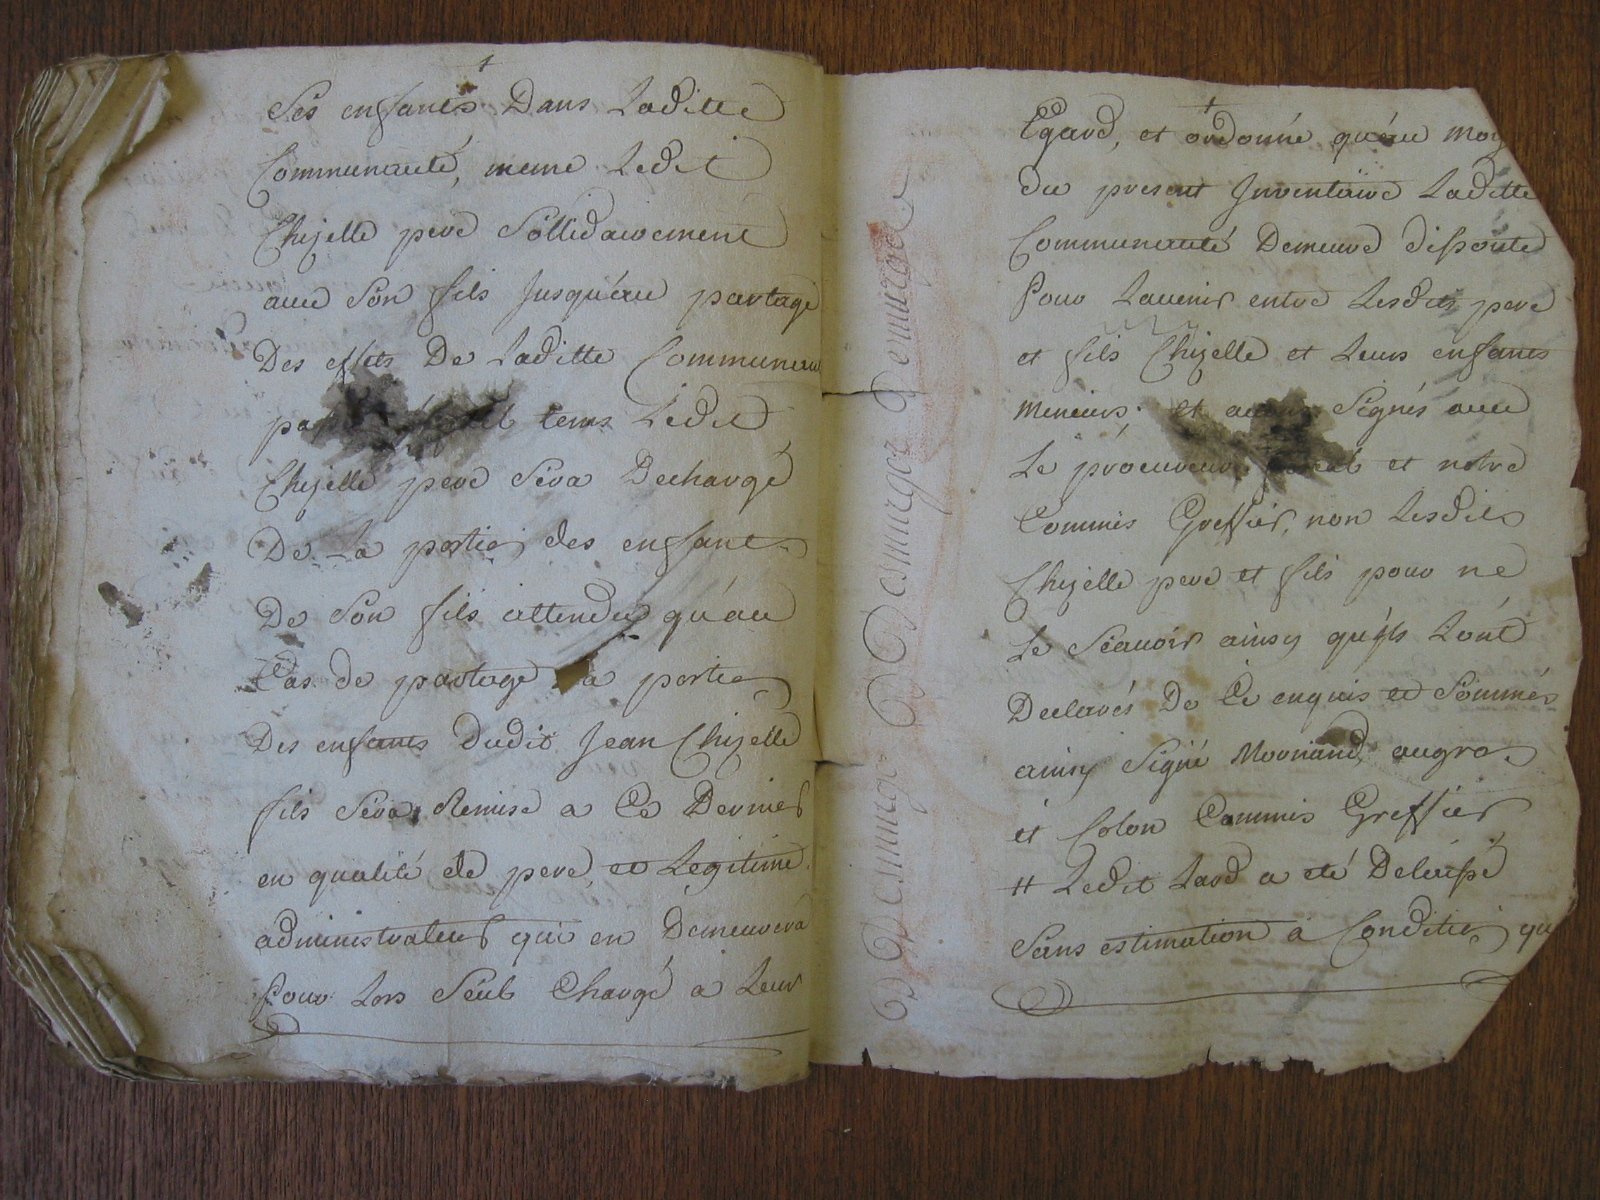 Ses enfants Dans Laditte
Communauté, meme Ledit
Chizelle pere Sollidairement
avec Son fils Jusqu'au partage
Des effets De Laditte Communau
tems Ledit
Chizelle pere Sera Dechargé
De La portion des enfants
De Son fils attendu qu'au
Cas de partage La portion
Des enfants dudit Jean Chizelle
fils Sera Remise a Ce Dernier
en qualité de pere et Legitime
administrateur qui en Demeurera
Pour Lors Seul Chargé a Leur
Egard, et ordonné qu'au moy
du present Inventaire Laditte
Communauté Demeure dissoute
Pour Lavenir entre Lesdits pere
et fils Chizelle et Leurs enfants
mineurs; et avons Signés avec
Le procureur et notre
Commis Greffier, non Lesdits
Chizelle pere et fils pour ne
Le Scavoir ainsy qu'ils L'ont
Declarés De Ce enquis et Sommés
ainsy Signé augros
et Colon Commis Greffier
# Ledit Lard a eté Delaissé
Sans estimation a Condition qu